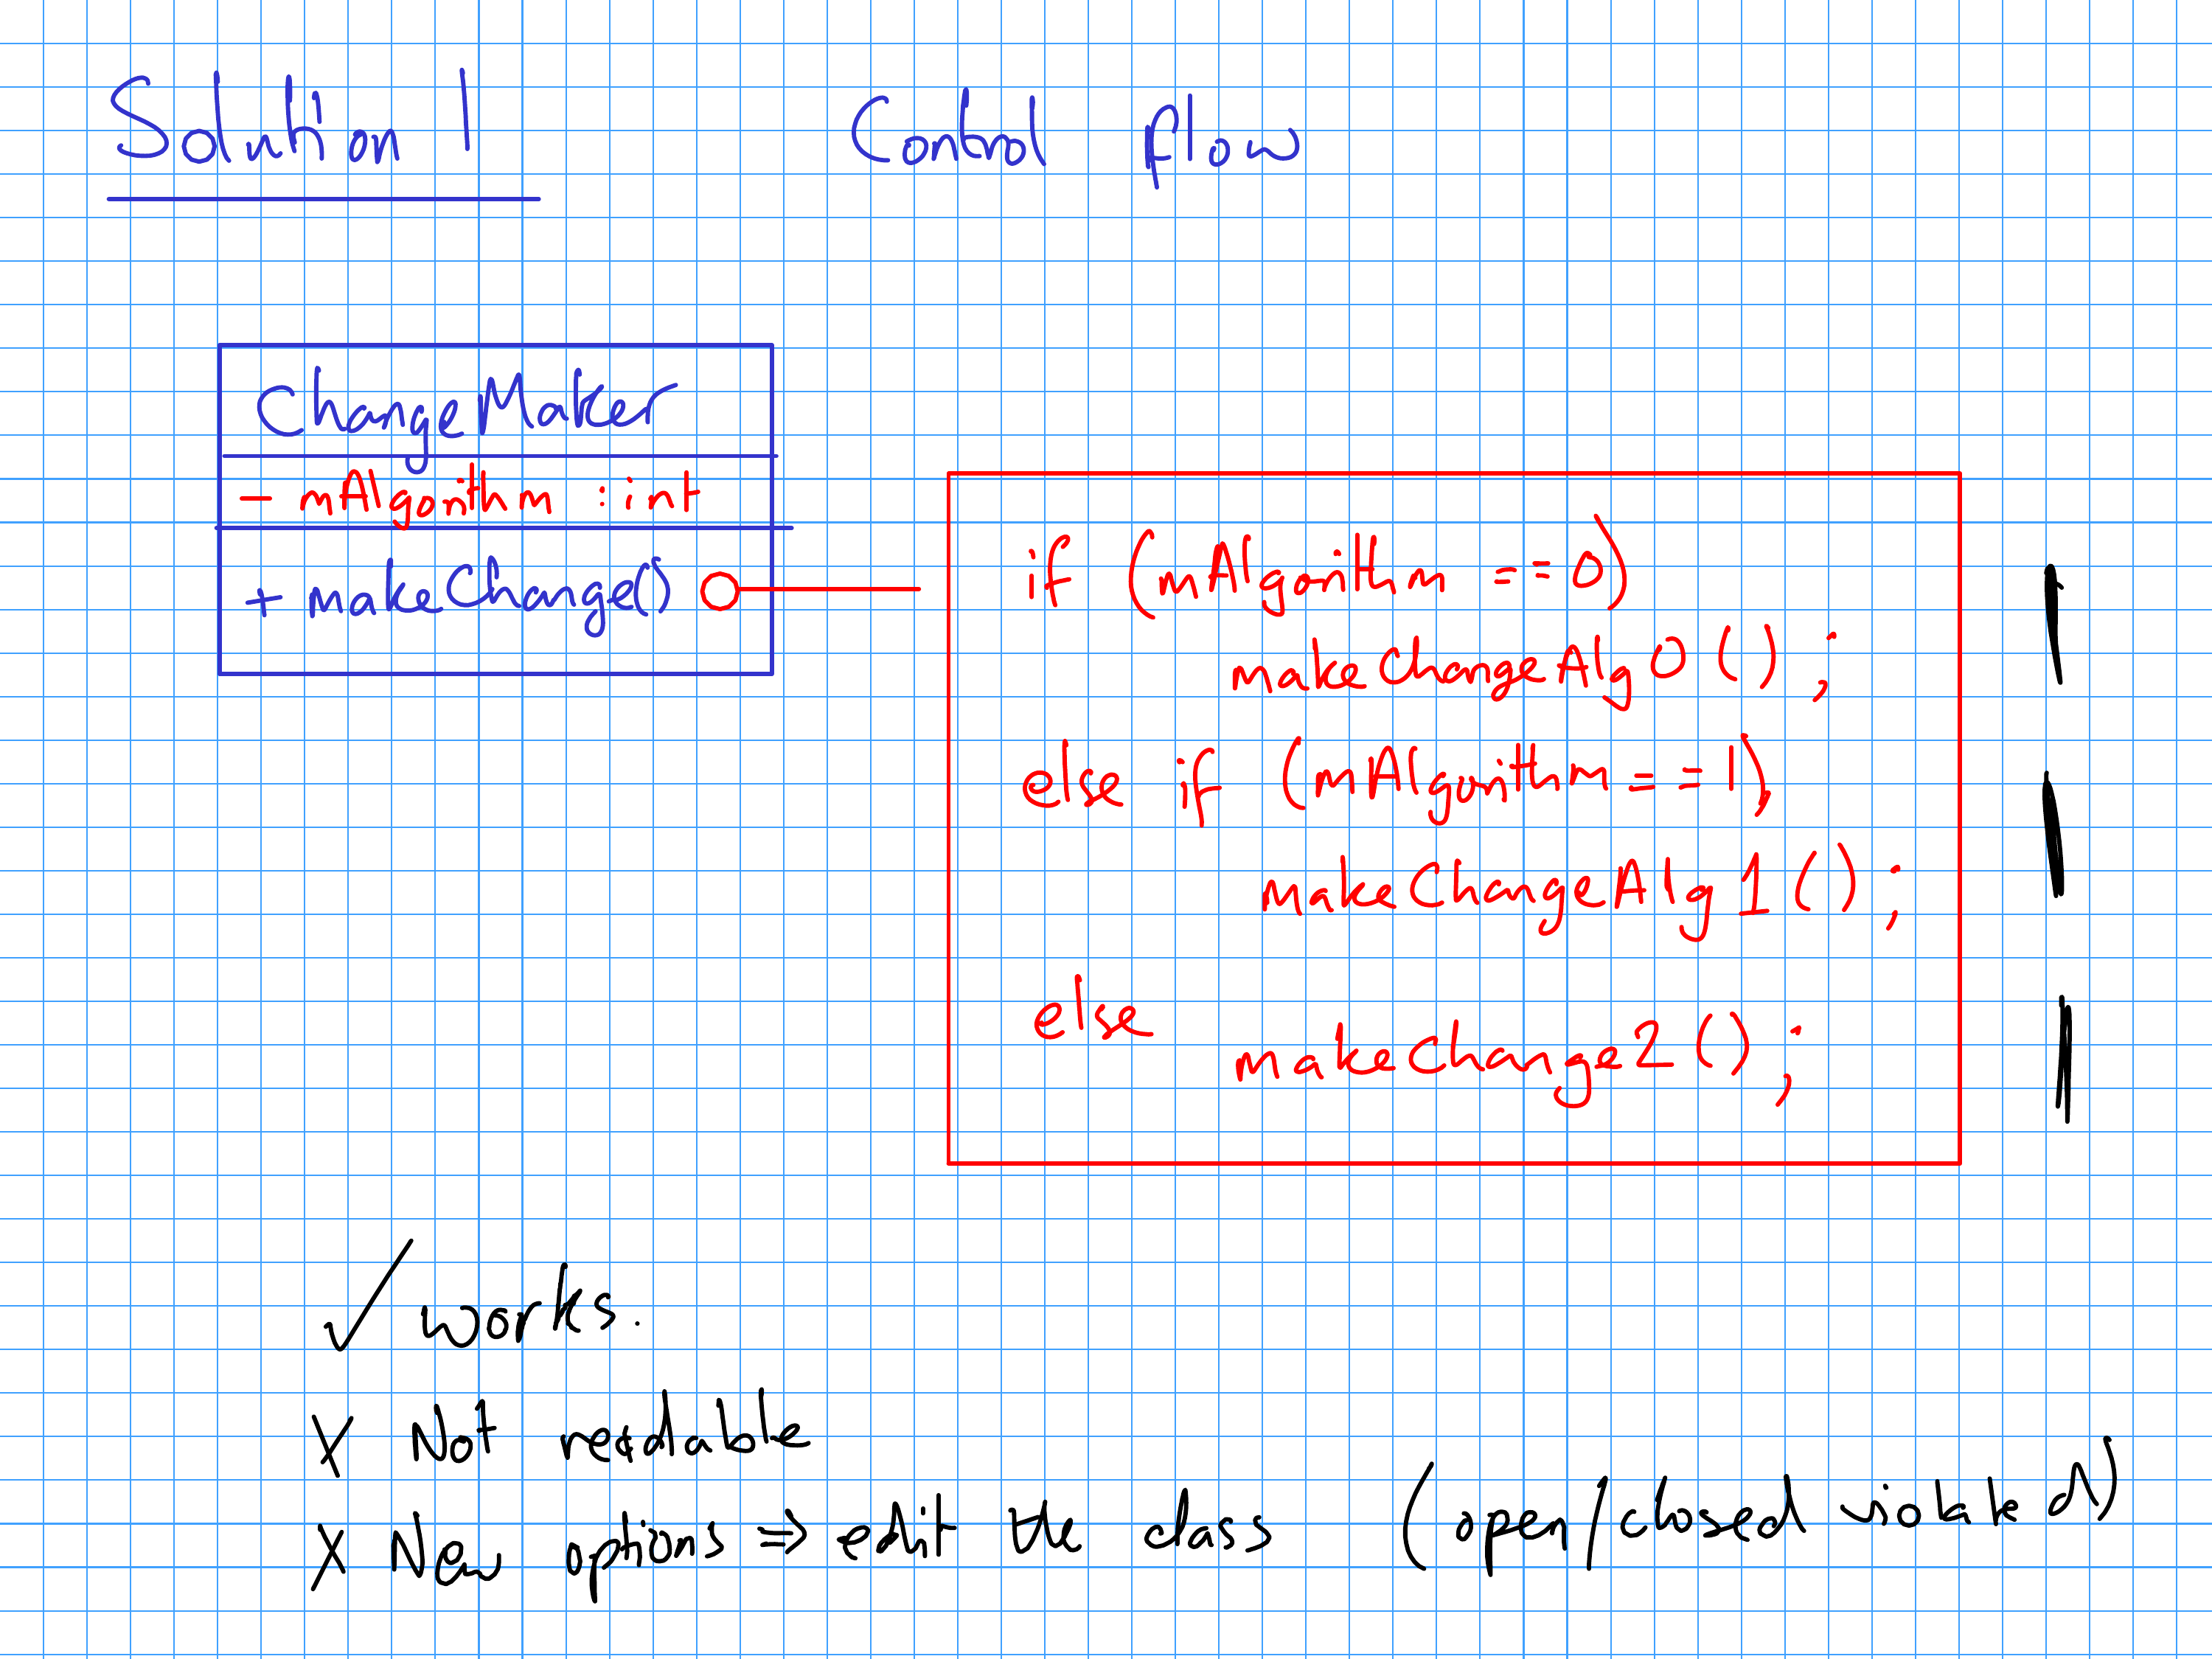 Solution 1
Control flow
ChangeMaker
- mAlgorithm : int
+ makeChange()
if (mAlgorithm == 0)
makeChangeAlg0();
else if (mAlgorithm == 1)
makeChangeAlg1();
else
makeChange2();
✓ works.
X Not readable
X New options => edit the class (open/closed violated)